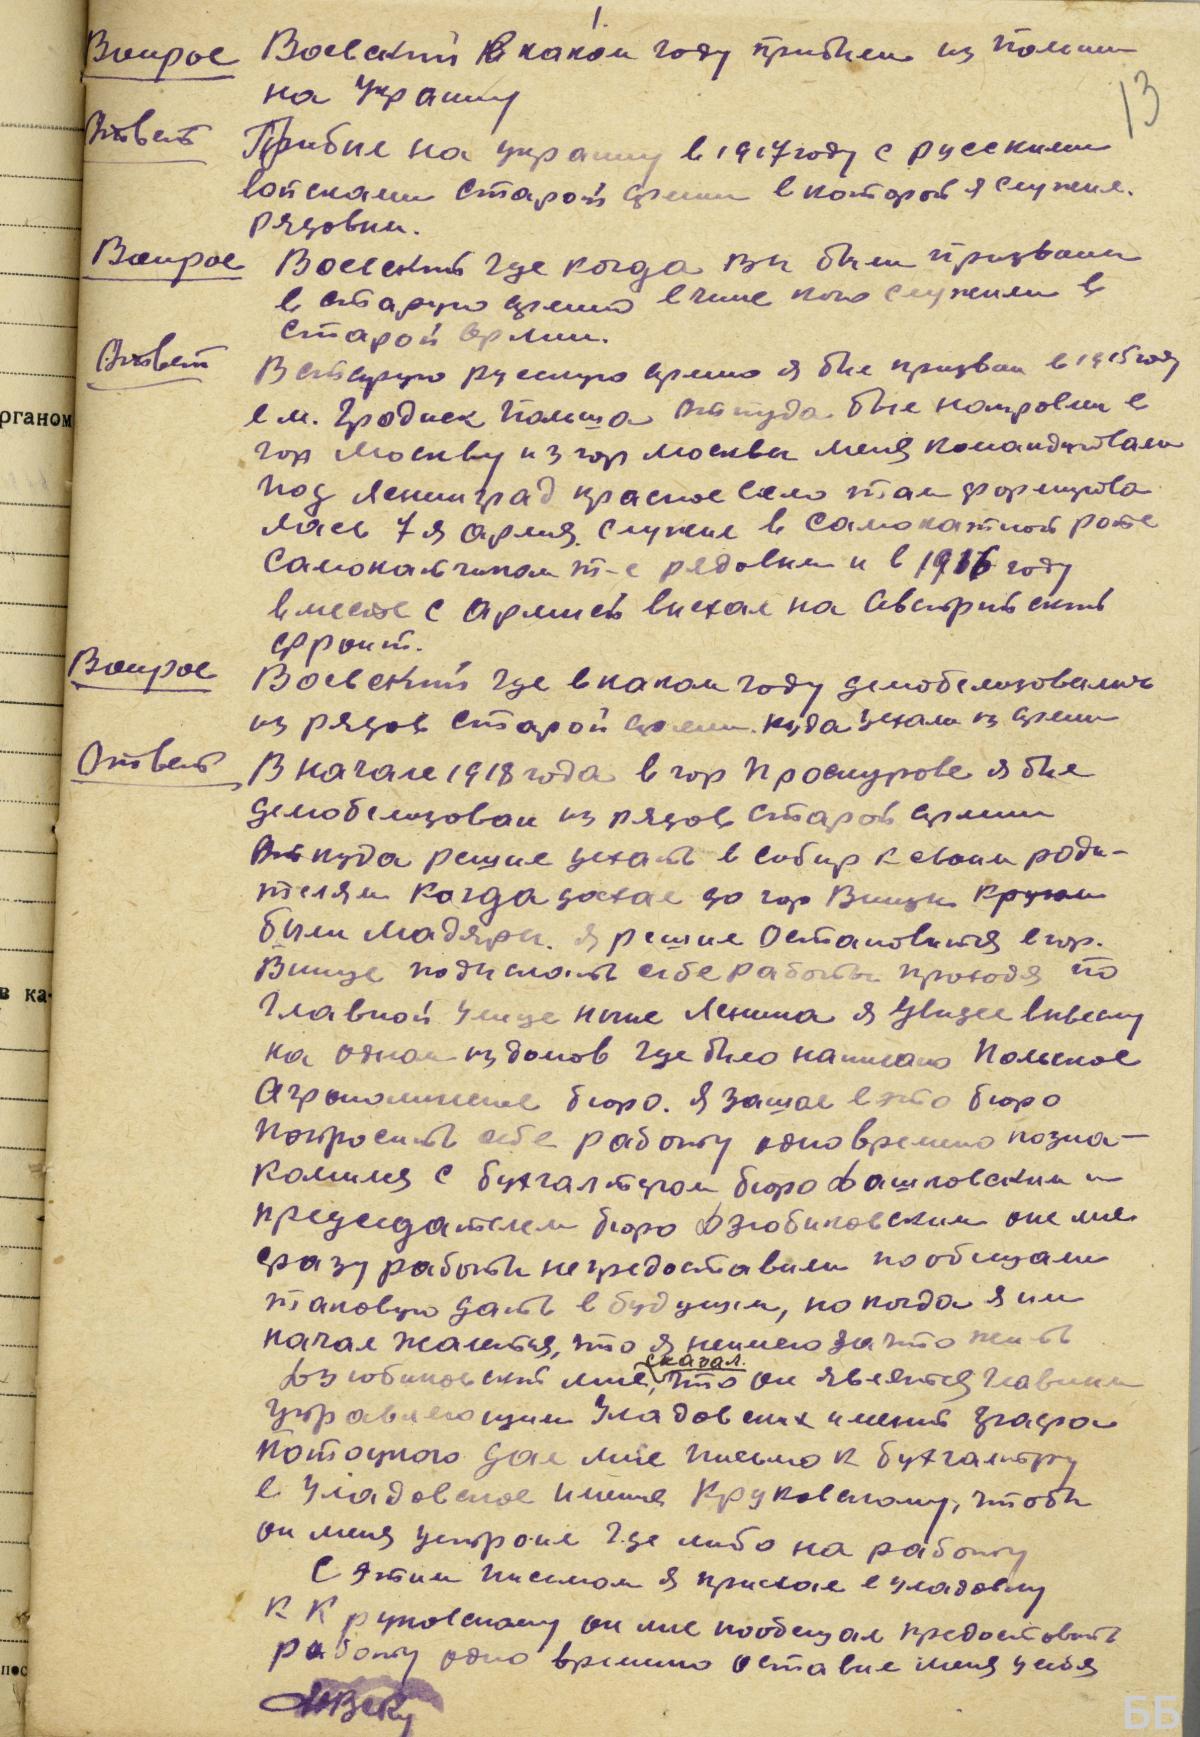 1.
13
Вопрос Воевский в каком году прибыли из Польши
на Украину
Ответ Прибыл на украину в 1917 году с русскими
войсками старой армии в которой я служил.
рядовым.
Вопрос Воевский где когда вы были призваны
в старую армию в чине кого служили в
старой армии.
Ответ В старую русскую армию я был призван в 1915 году
в м. Гродиск Польша Откуда был направлен в
гор Москву из гор Москвы меня командировали
под Ленинград красное село там формирова
лась 7 я Армия. Служил в Самокатной роте
Самокатчиком т-е рядовым и в 1916 году
вместе с Армией выехал на Австрийский
фронт.
Вопрос Воевский где в каком году демобелизовались
из рядов Старой армии. куда уехали из армии
Ответ В начале 1918 года в гор Проскурове я был
демобелизован из рядов Старой армии
Откуда решил уехать в сибир к своим роди-
телям когда доехал до гор Виницы кругом
были Мадяры. я решил Остановится в гор.
Винице подыскать себе работы проходя по
Главной улице ныне Ленина я увидел вывеску
на одном из домов где было написано Польское
Агрономическое бюро. я зашол в это бюро
попросить себе работу одновремено позна-
комился с бухгалтером бюро Фашковским и
председателем бюро Дзюбиковским они мне
сразу работы непредоставили пообещали
таковую дать в будущем, но когда я им
начал жалится, что я неимею за что жить
Дзюбиковский мне, сказал. что он является главным
управляющим Уладовских имений графа
Потоцкого дал мне письмо к бухгалтеру
в Уладовское имение Круковскому, чтобы
он меня устроил где либо на работу
С этим писмом я приехал в Уладовку
к Круковскому он мне пообещал предоставить
работу одно времено оставил меня у себя
ББ
рганом
в ка-
пос